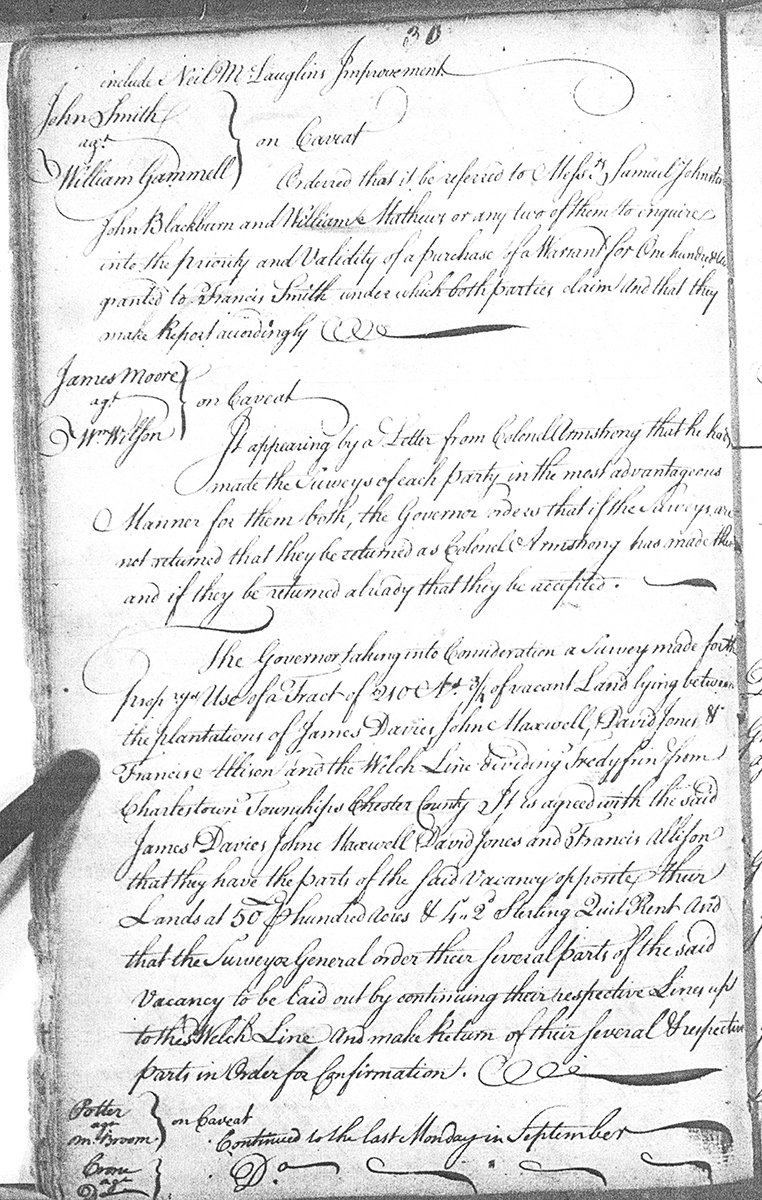 30
include Neil Mc Lauglins Improvement
John Smith
agt
William Gammell
on Caveat
Orderred that it be referred to Messrs Samuel Johnston
John Blackburn and William Mathews or any two of them to enquire
into the priority and Validity of a purchase of a Warrant for One hundred
granted to Francis Smith under which both parties claim And that they
make Report accordingly
James Moore
agt
Wm Wilson
on Caveat
It appearing by a Letter from Colonel Armstrong that he had
made the Surveys of each party in the most advantageous
Manner for them both, the Governor orders that if the Surveys are
not returned that they be returned as Colonel Armstrong has made them
and if they be returned already that they be accepted.
The Governor taking into Consideration a Survey made for the
Propryrs Use of a Tract of 210 As 3/4 of vacant Land lying between
the plantations of James Davies John Maxwell, David Jones &
Francis Allison and the Welch Line dividing Tredyfrin from
Charlestown Townships Chester County It is agreed with the said
James Davies John Maxwell David Jones and Francis Allison
that they have the parts of the said Vacancy opposite their
Lands at 50 ⅌ hundred Acres & 4s.. 2d Sterling Quit Rent And
that the Surveyor General order their several parts of the said
Vacancy to be laid out by continuing their respective Lines up
to the Welch Line And make Return of their several & respective
parts in Order for Confirmation.
Potter
agt
Mc Broom
on Caveat
Continued to the last Monday in September
Crone
agt
Do